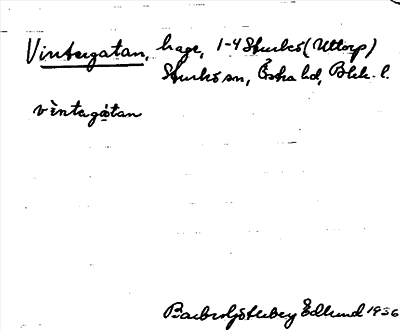 Vintergatan, hage, 1-4 Sturkö (Uttorp)
Sturkö sn, Östra hd, Blek. l.
vìntagàtan
Edlund 1936